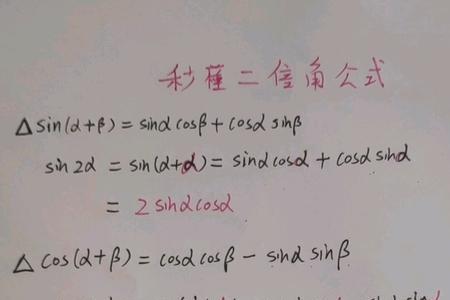 秒懂二倍角公式
△ sin(α+β) = sinα cosβ + cosα sinβ
sin 2α = sin(α+α) = sinα cosα + cosα sinα
= 2 sinα cosα
△ cos(α+β) = cosα cosβ − sinα sinβ